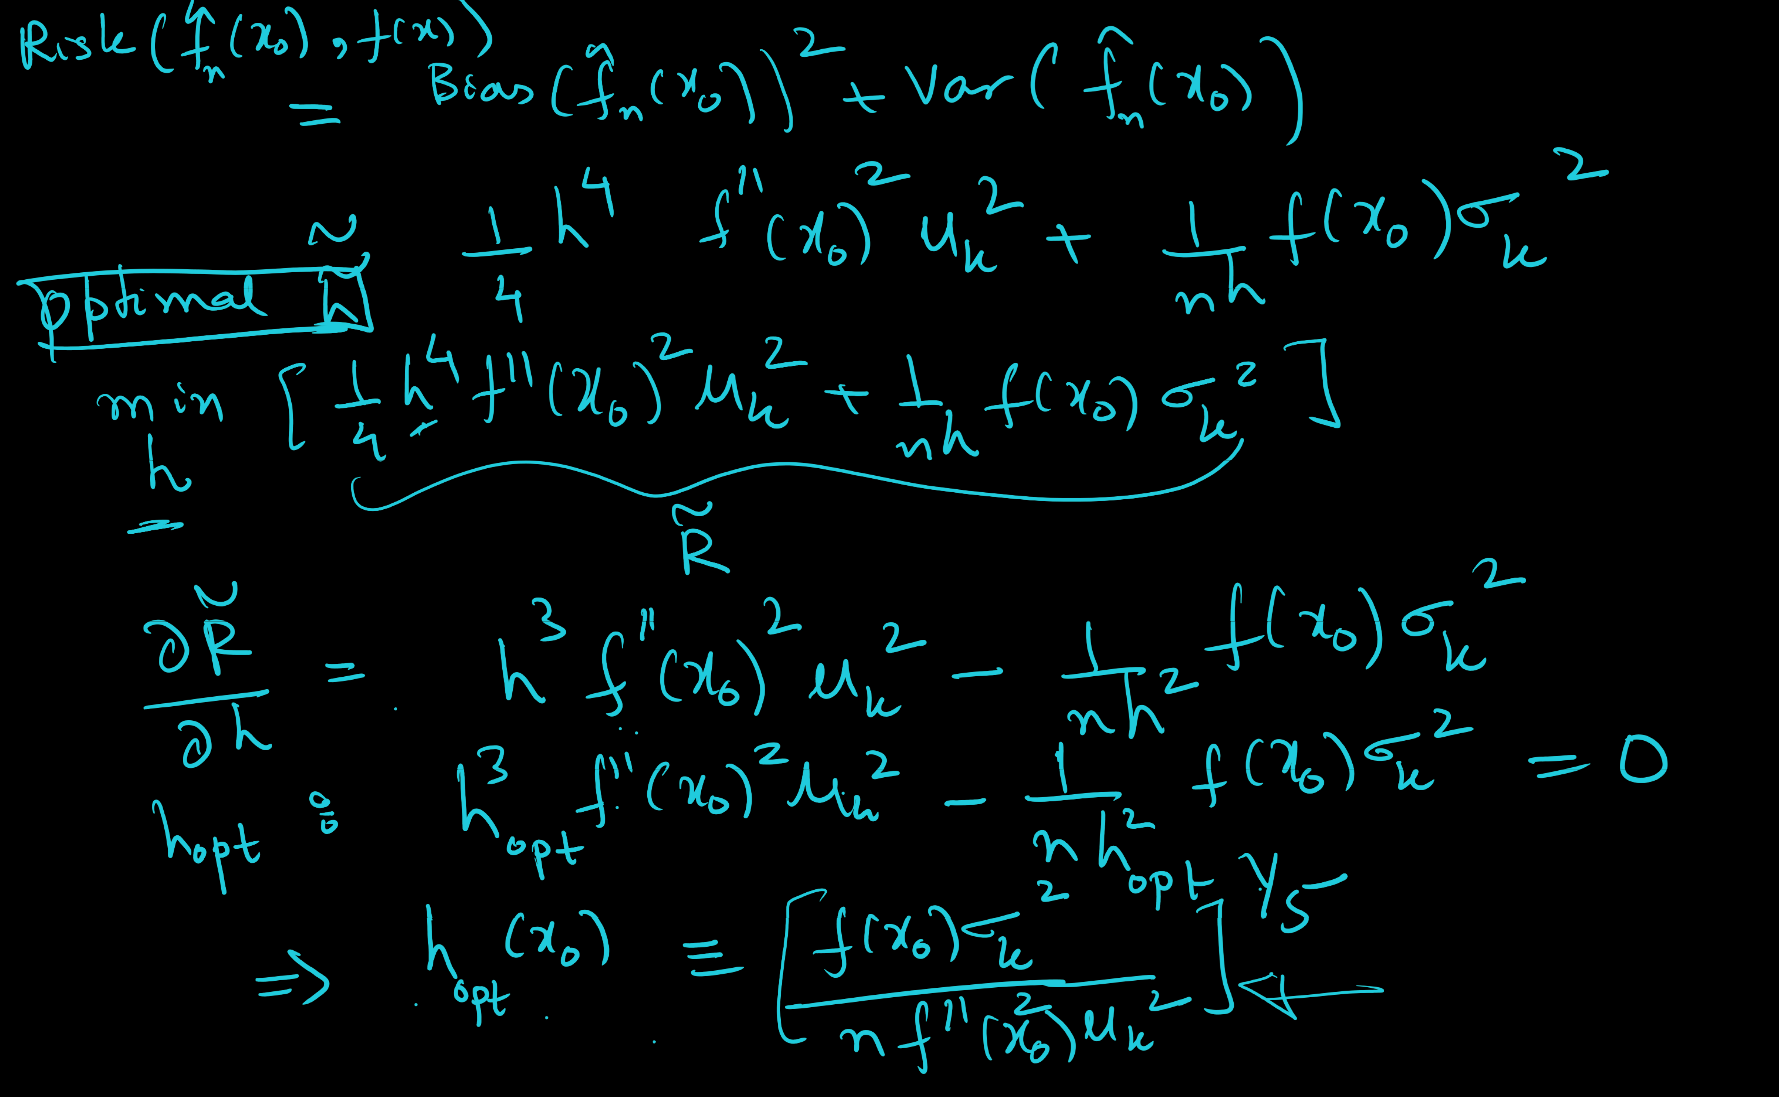 Risk(f̂ₙ(x₀), f(x))
= Bias(f̂ₙ(x₀))² + Var(f̂ₙ(x₀))
1/4 h⁴ f''(x₀)² μₖ² + 1/nh f(x₀) σₖ²
optimal h̃
min h [1/4 h⁴ f''(x₀)² μₖ² + 1/nh f(x₀) σₖ²]
R̃
∂R̃/∂h = h³ f''(x₀)² μₖ² − 1/nh² f(x₀) σₖ²
h_opt : h³_opt f''(x₀)² μₖ² − 1/nh²_opt f(x₀) σₖ² = 0
⇒ h_opt(x₀) = [f(x₀) σₖ² / n f''(x₀)² μₖ²]^1/5 ←